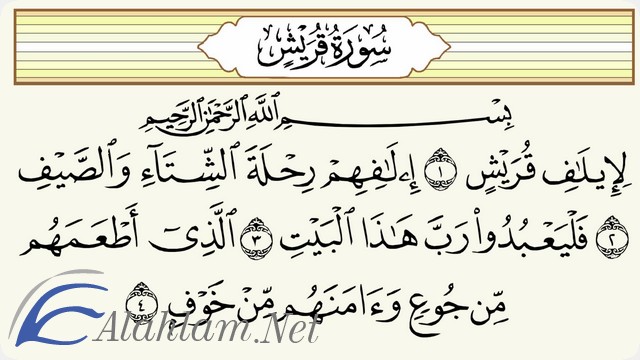 سُورَةُ قُرَيْشٍ
بِسْمِ ٱللَّهِ ٱلرَّحْمَٰنِ ٱلرَّحِيمِ
لِإِيلَٰفِ قُرَيْشٍ ١ إِۦلَٰفِهِمْ رِحْلَةَ ٱلشِّتَآءِ وَٱلصَّيْفِ
٢ فَلْيَعْبُدُوا۟ رَبَّ هَٰذَا ٱلْبَيْتِ ٣ ٱلَّذِىٓ أَطْعَمَهُم
مِّن جُوعٍ وَءَامَنَهُم مِّنْ خَوْفٍ ٤
Alahlam.Net